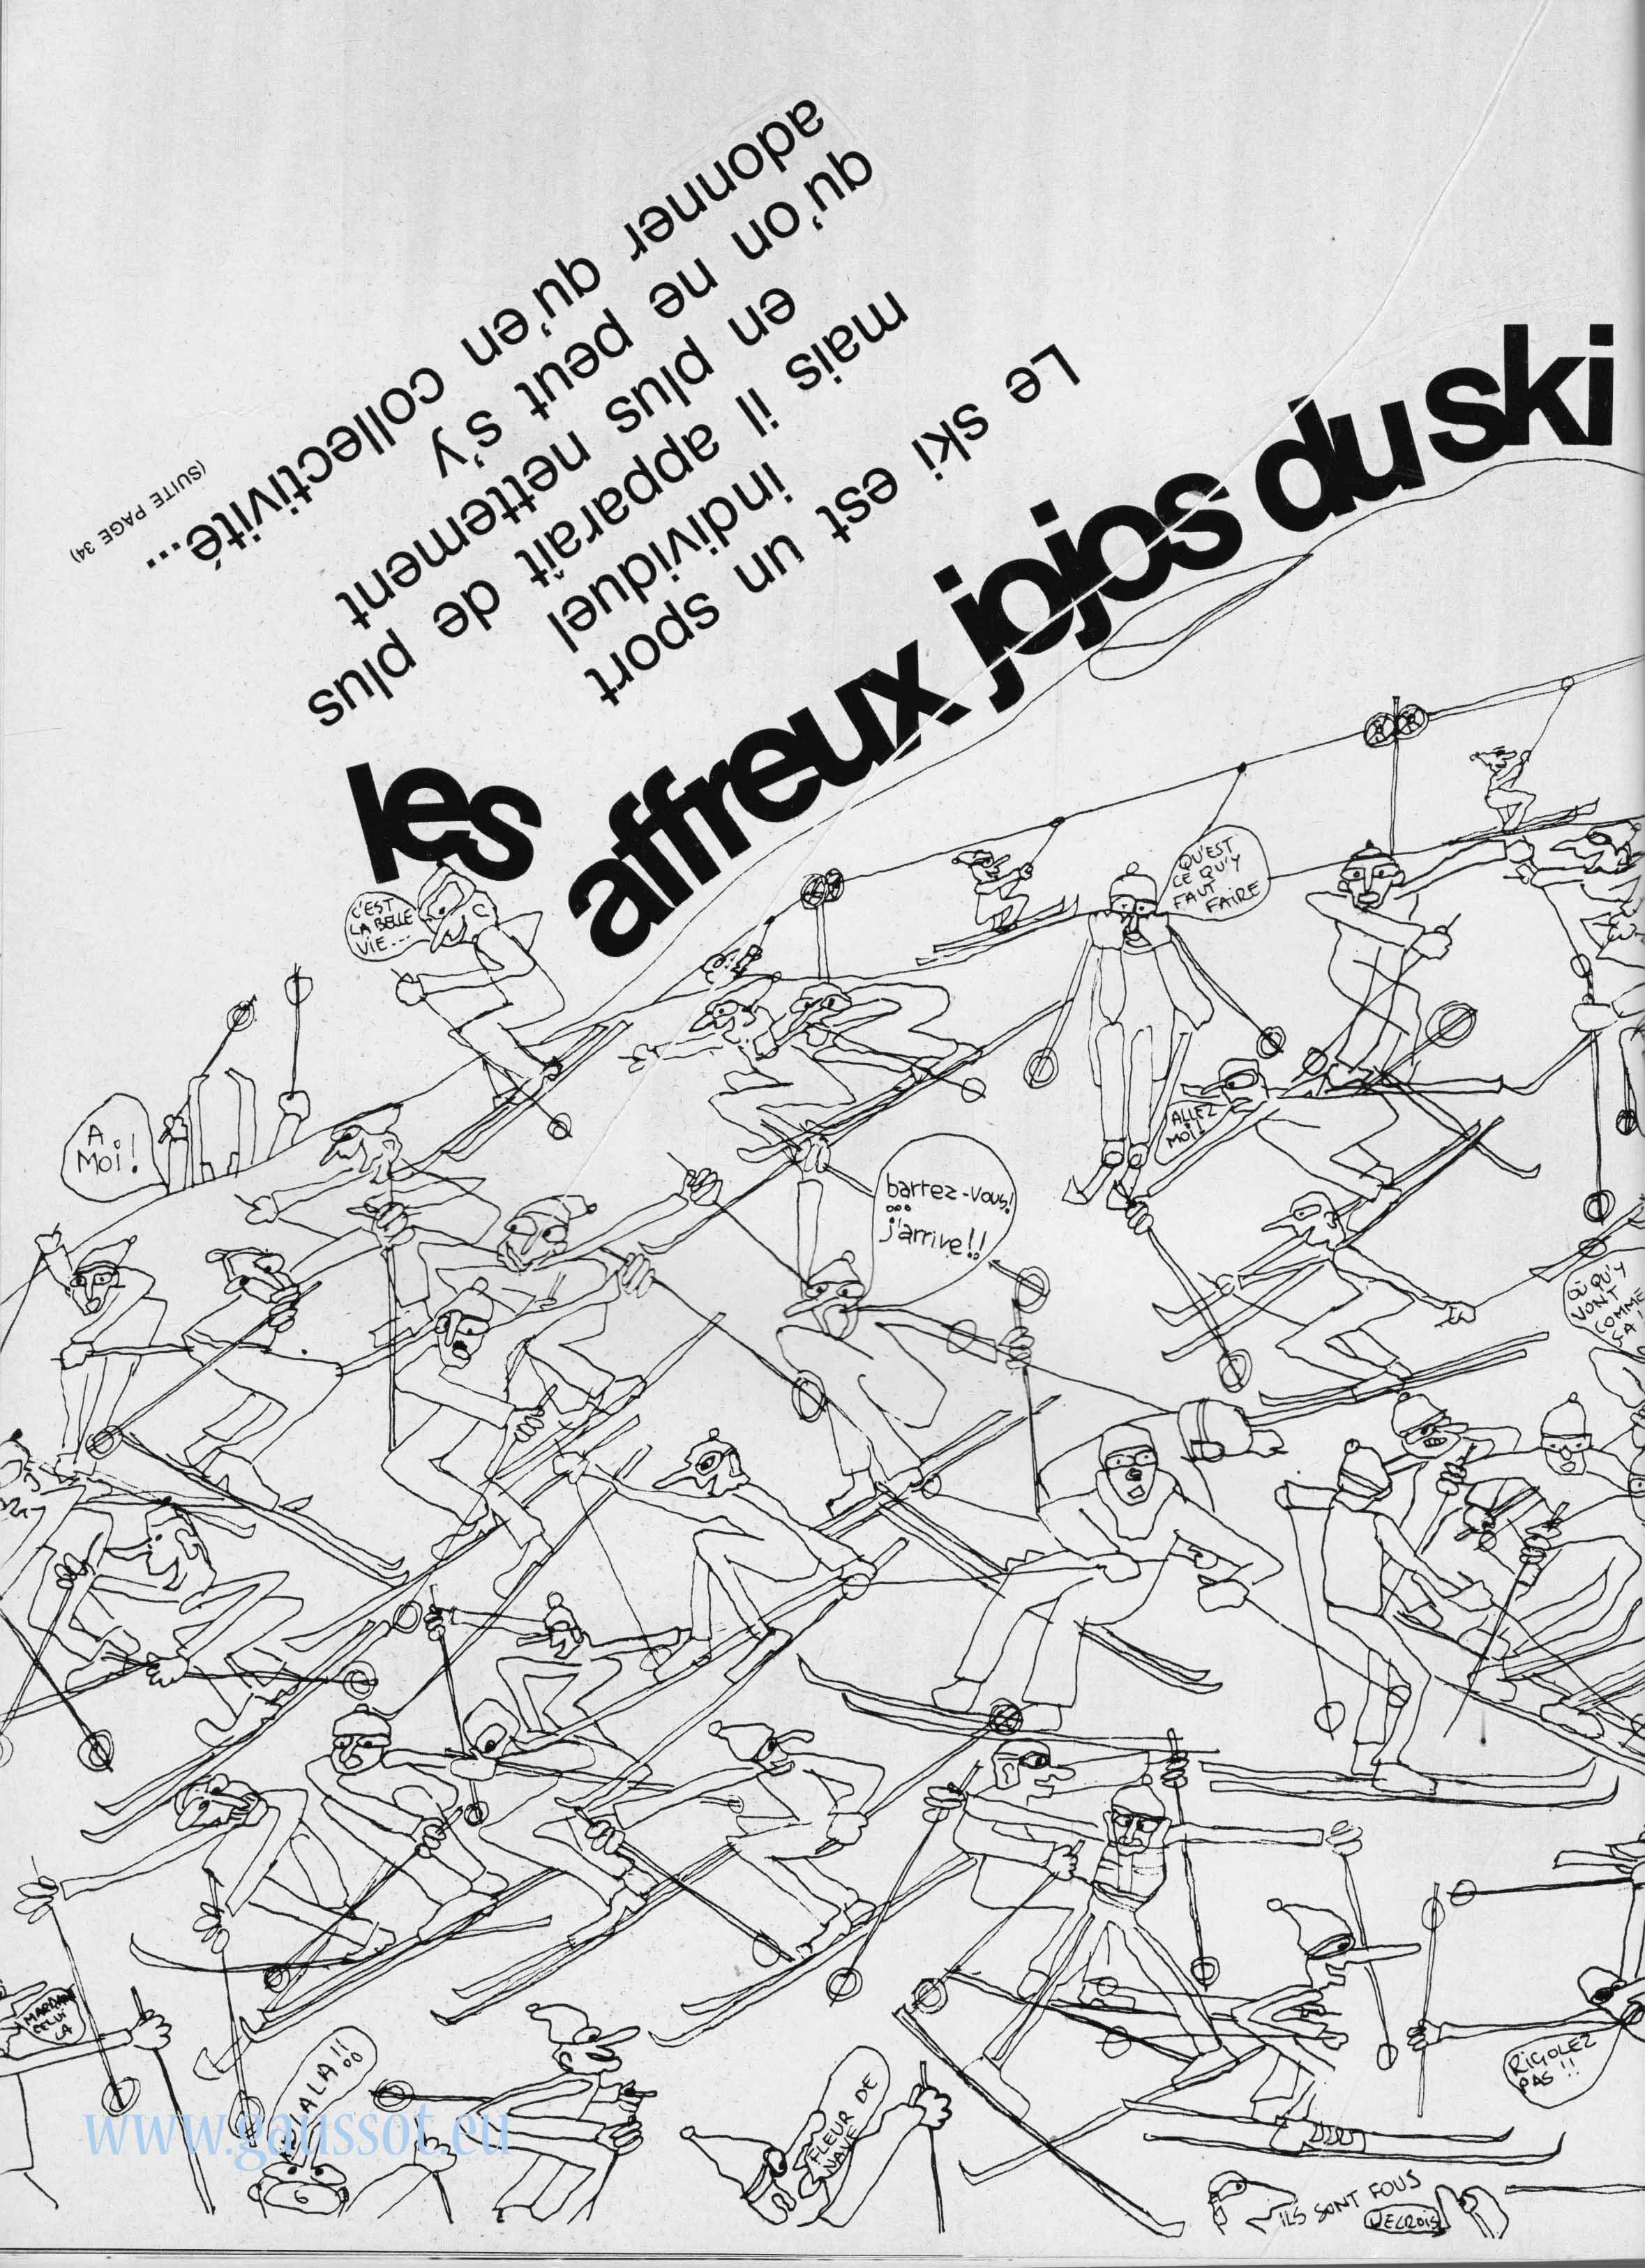 les
affreux jojos du ski
Le ski est un sport
individuel
mais il apparaît de plus
en plus nettement
qu'on ne peut s'y
adonner qu'en collectivité...
(SUITE PAGE 34)
C'EST
LA BELLE
VIE...
QU'EST
CE QU'Y
FAUT
FAIRE
A
MOI!
ALLEZ
MOI!
barrez-vous!
...
j'arrive!!
OÙ QU'Y
VONT
COMME
ÇA!
CELUI
LA
LALA!!
FLEUR DE
NAVE
RIGOLEZ
PAS!!
ILS SONT FOUS
www.gaussot.eu